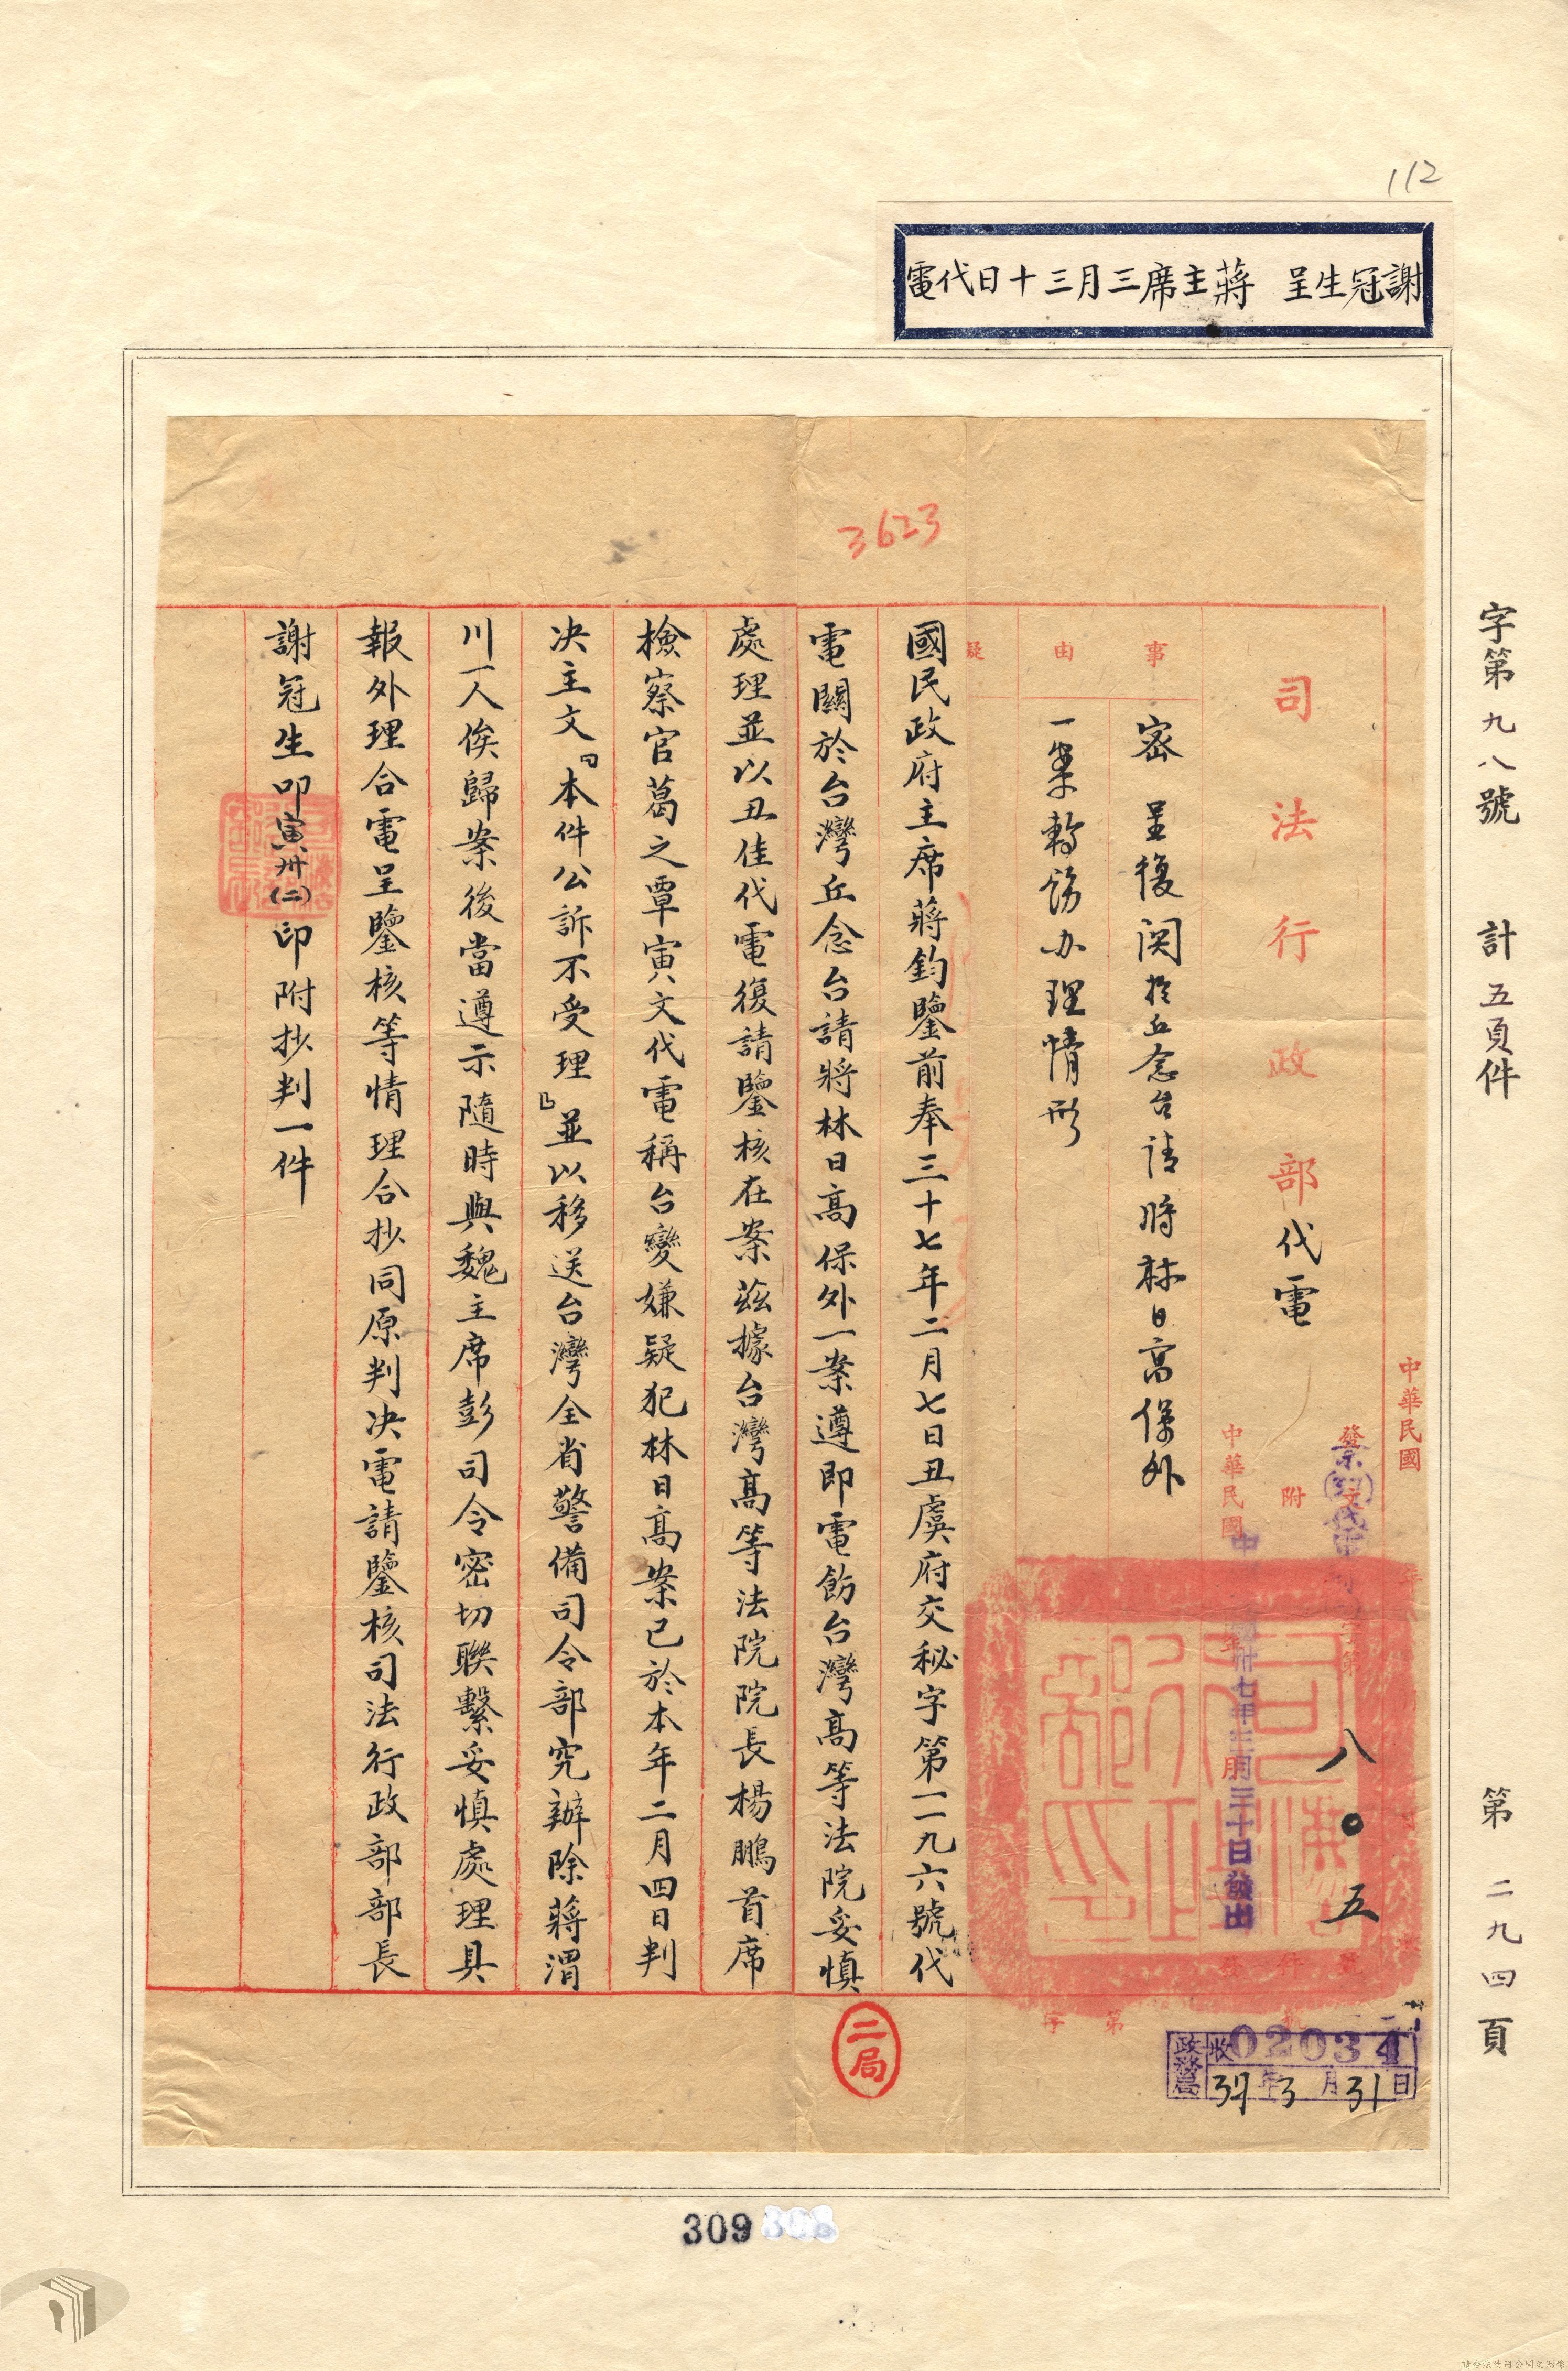 112
謝冠生呈　蔣主席三月三十日代電
字第九八號　計五頁件　第二九四頁
3623
中華民國
司法行政部代電
附
八〇五
中華民國
卅七年三月三十日發出
事由
密　呈復関於丘念台請將林日高保外
一案轉飭办理情形
國民政府主席蔣鈞鑒前奉三十七年二月七日丑虞府交秘字第一一九六號代
電關於台灣丘念台請將林日高保外一案遵即電飭台灣高等法院妥慎
處理並以丑佳代電復請鑒核在案茲據台灣高等法院院長楊鵬首席
檢察官葛之覃寅文代電稱台變嫌疑犯林日高案已於本年二月四日判
決主文「本件公訴不受理」並以移送台灣全省警備司令部究辦除蔣渭
川一人俟歸案後當遵示隨時與魏主席彭司令密切聯繫妥慎處理具
報外理合電呈鑒核等情理合抄同原判決電請鑒核司法行政部部長
謝冠生叩寅卅(二)印附抄判一件
二局
政務局
收 02034
37年3月31日
309
請合法使用公開之影像